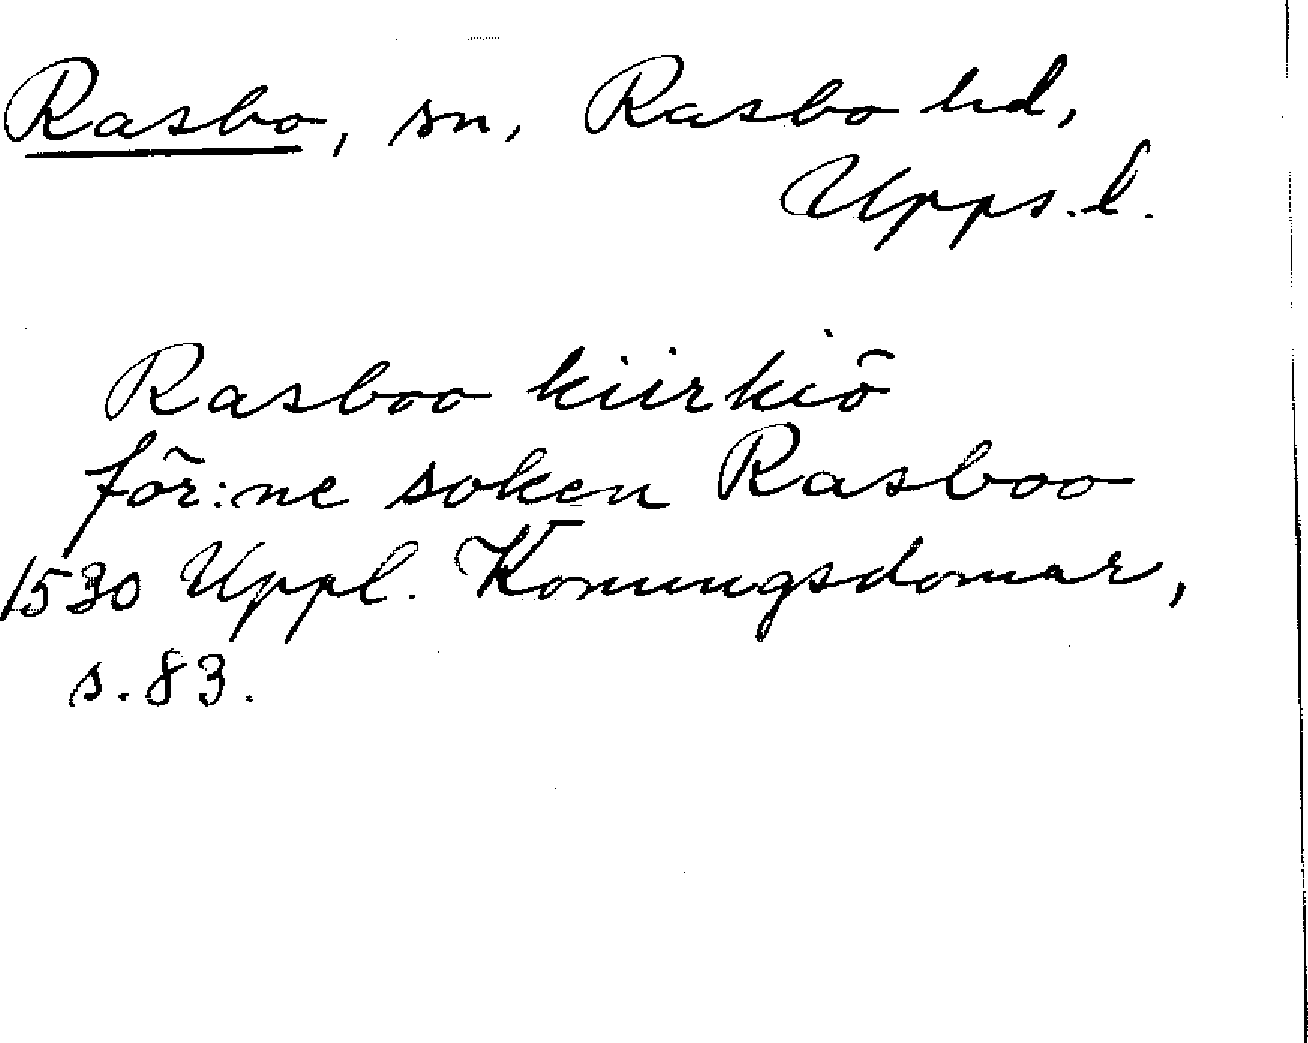 Rasbo, sn, Rasbo hd,
Upps. l.
Rasboo kiirkiö
för:ne soken Rasboo
1530 Uppl. Konungsdomar,
s. 83.